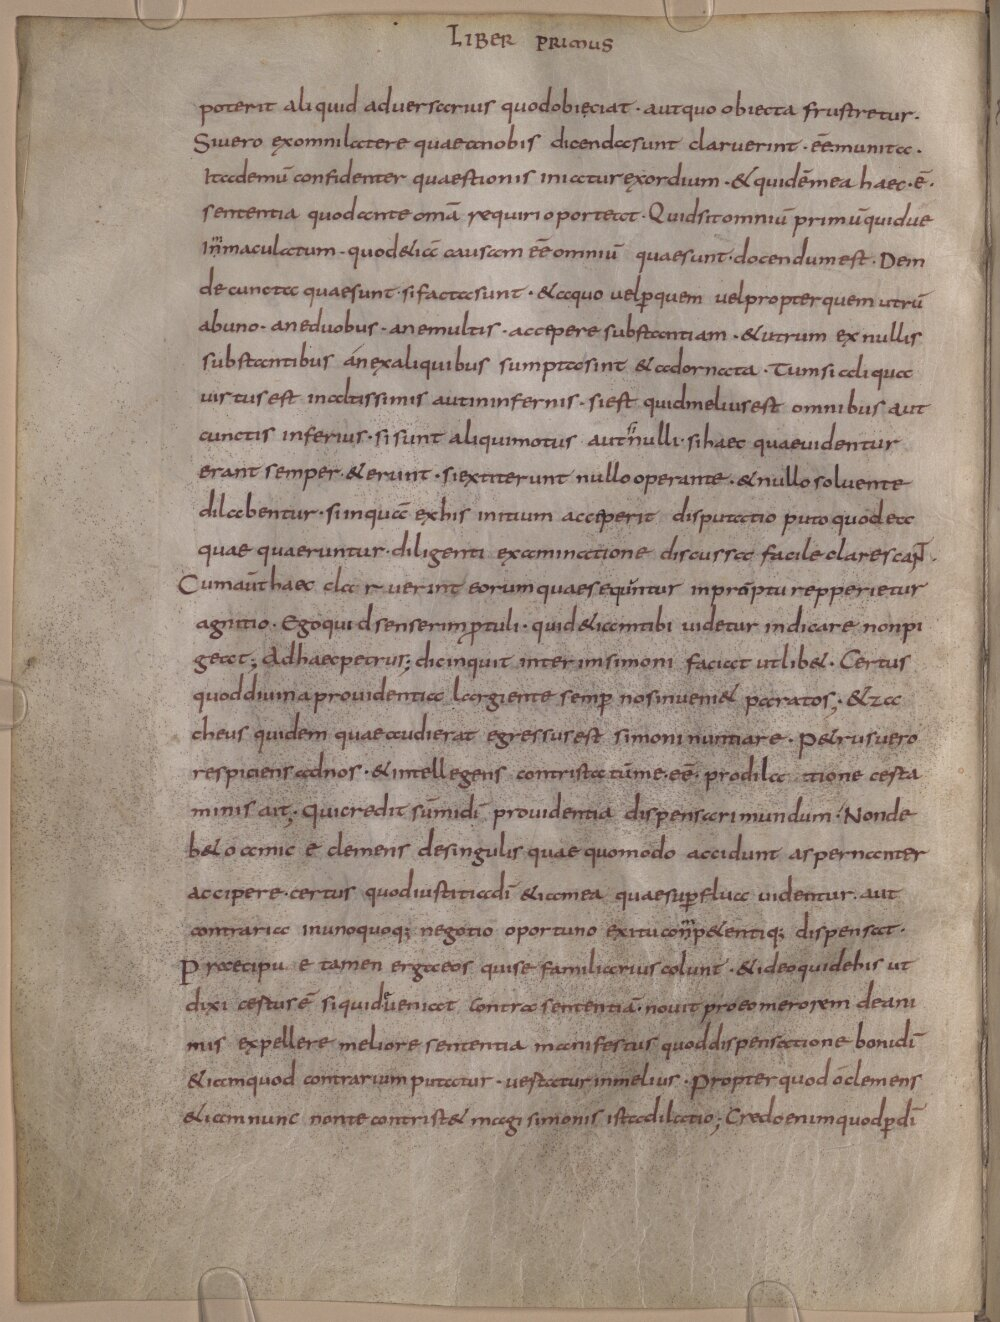 LIBER PRIMUS
poterit aliquid aduersarius quod obięciat · aut quo obiecta frustretur ·
Siuero ex omni latere quae a nobis dicenda sunt claruerint · eē munita ·
Ita demū confidenter quaestionis iniatur exordium · & quidē mea haec · ē ·
sententia quod ante omā requiri oportet · Quid sit omniū primū quid uę
Inmaculatum · quod & iā causam eē omniū quae sunt · docendum est · Dem
de cuncta quae sunt · si facta sunt · & a quo uel p quem uel propter quem utrū
ab uno · an e duobus · an e multis · accepere substantiam · & utrum ex nullis
substantibus an ex aliquibus sumpta sint & adornata · Tum si aliqua
uirtus est in altissimis aut in infernis · si est quid melius est omnibus aut
cunctis inferius · si sunt aliqui motus aut nulli · si haec quae uidentur
erant semper · & erunt · si extiterunt nullo operante · & nullo soluente
dilabentur · si inquā ex his initium acceperit disputatio puto quod ea
quae quaeruntur · diligenti examinatione discussa facile clarescant ·
Cum aūt haec cla ruerint eorum quae sequntur in prōptu repperietur
agnitio · Ego quid senserim ptuli · quid & iam tibi uidetur indicare non pi
geat; Ad haec petrus; dic inquit interim simoni faciat ut lib& · Certus
quod diuina prouidentia largiente semp nos inueni& paratos; · & za
cheus quidem quae audierat egressus est simoni nuntiare · P&rus uero
respiciens ad nos · & intellegens contristatū me · eē · pro dila tione certa
minis ait; · Qui credit sūmi dī prouidentia dispensari mundum · Non de
b& o amic e clemens de singulis quae quomodo accidunt aspernanter
accipere · certus quod iustitia dī & iam ea quae supflua uidentur · aut
contraria in uno quoq; negotio oportuno exitu conp&entiq; dispensat ·
Praecipu e tamen erga eos qui se familiarius colunt · & ideo qui de his ut
dixi certus ē si quid eueniat contra sententiā · nouit pro eo merorem de ani
mis expellere meliore sententia manifestus quod dispensatione boni dī
& iam quod contrarium putatur · uertatur in melius · Propter quod ō clemens
& iam nunc non te contrist& magi simonis ista dilatio; Credo enim quod p dī